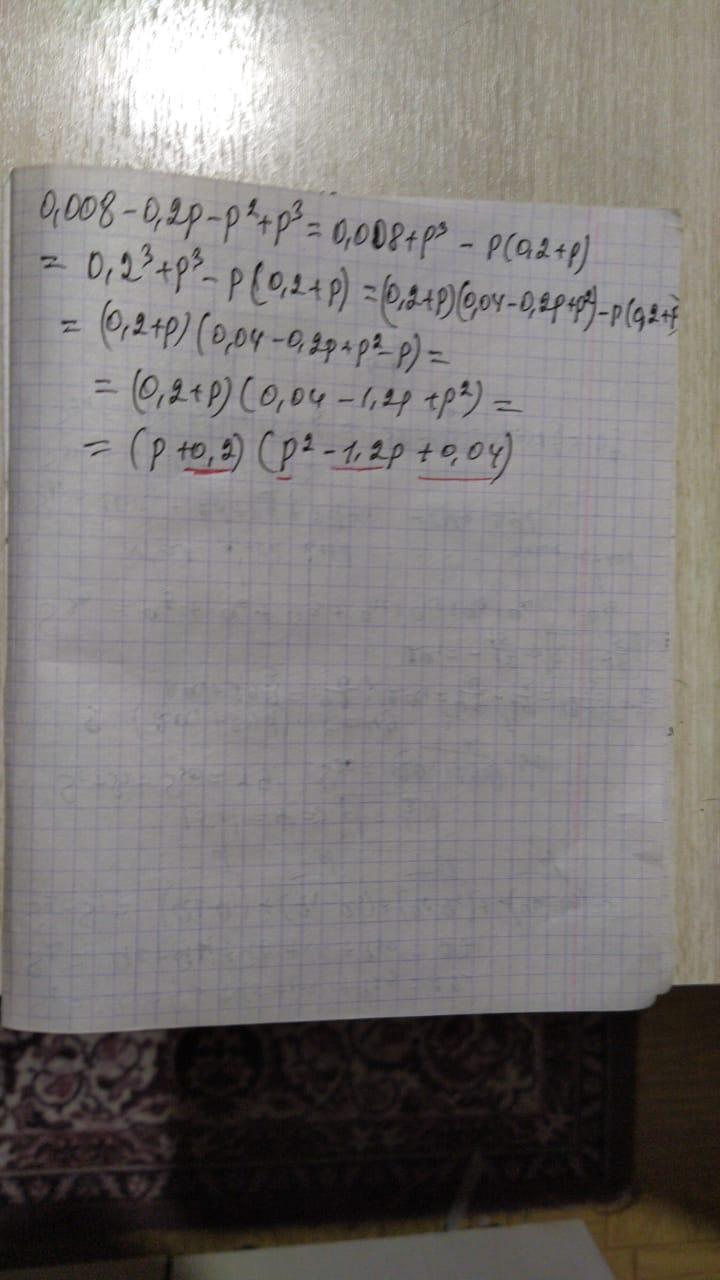 0,008-0,2p-p²+p³=0,008+p³ - p(0,2+p)
= 0,2³+p³-p(0,2+p)=(0,2+p)(0,04-0,2p+p²)-p(0,2+p)
= (0,2+p)(0,04-0,2p+p²-p)=
= (0,2+p)(0,04-1,2p+p²)=
= (p+0,2)(p²-1,2p+0,04)